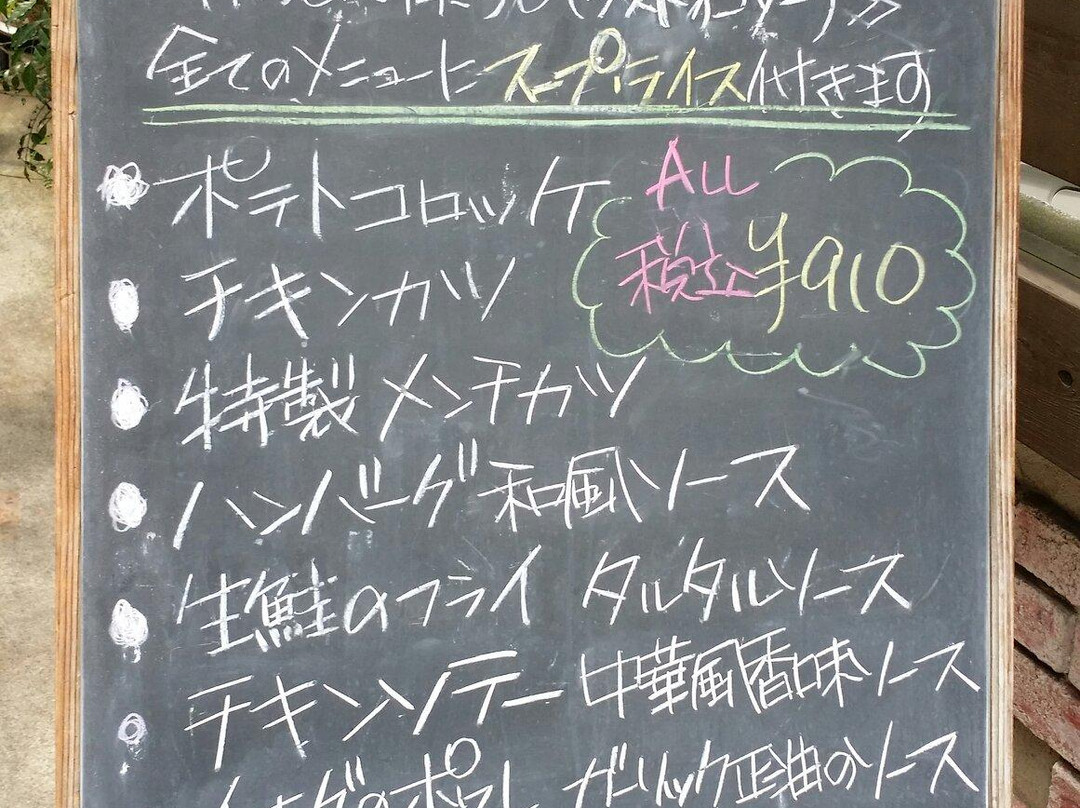 全てのメニューにスープ、ライス付きます
ポテトコロッケ
ALL
税込¥910
チキンカツ
特製メンチカツ
ハンバーグ和風ソース
生鮭のフライ タルタルソース
チキンソテー 中華風香味ソース
ガーリック正油のソース